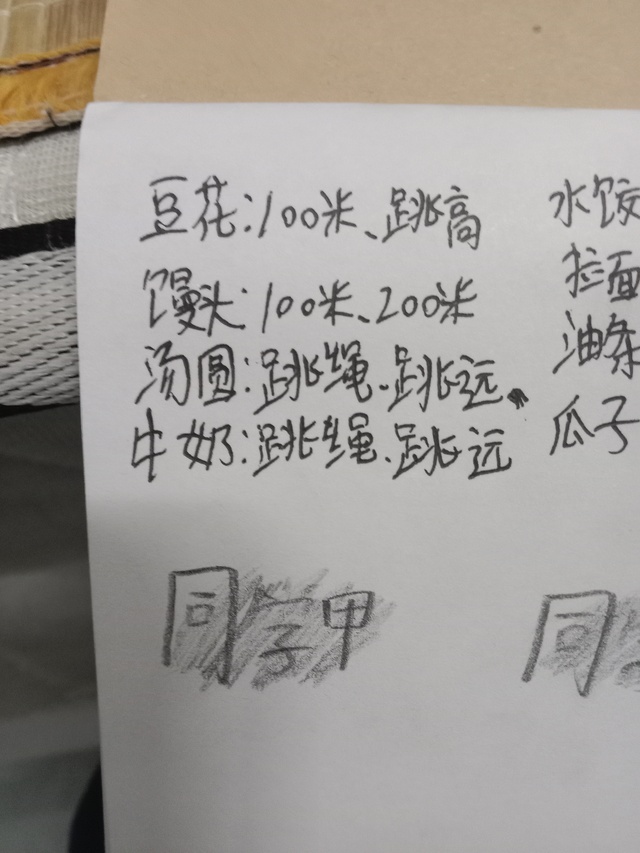 豆花:100米、跳高
馒头:100米、200米
汤圆:跳绳、跳远
牛奶:跳绳、跳远
水饺
拉面
油条
瓜子
同学甲
同